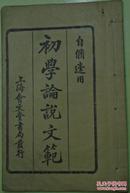 自修適用
初學論說文範
上海會文堂書局發行